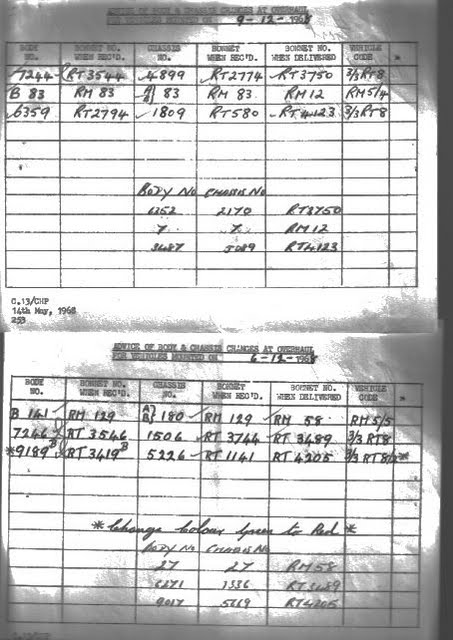 ADVICE OF BODY & CHASSIS CHANGES AT OVERHAUL
FOR VEHICLES MOUNTED ON 9-12-1968
BODY NO. BONNET NO. WHEN REC'D. CHASSIS NO. BONNET WHEN REC'D. BONNET NO. WHEN DELIVERED VEHICLE CODE
7244 RT3544 4899 RT2774 RT3750 3/3RT8
B 83 RM 83 83 RM 83 RM 12 RM5/4
6359 RT2794 1809 RT580 RT4123 3/3RT8
BODY No CHASSIS No
6352 2170 RT3750
7 7 RM12
3487 5089 RT4123
C.13/CHP
14th May, 1968
253
ADVICE OF BODY & CHASSIS CHANGES AT OVERHAUL
FOR VEHICLES MOUNTED ON 6-12-1968
BODY NO. BONNET NO. WHEN REC'D. CHASSIS NO. BONNET WHEN REC'D. BONNET NO. WHEN DELIVERED VEHICLE CODE
B 141 RM 129 180 RM 129 RM 58 RM5/5
7246 RT 3546 1506 RT 3744 RT 3489 3/3 RT8
*9189 B RT 3419 B 5226 RT 1141 RT 4205 3/3 RT8/2*
*Change Colour Green to Red*
BODY No CHASSIS No
27 27 RM58
1336 RT3489
9017 RT4205